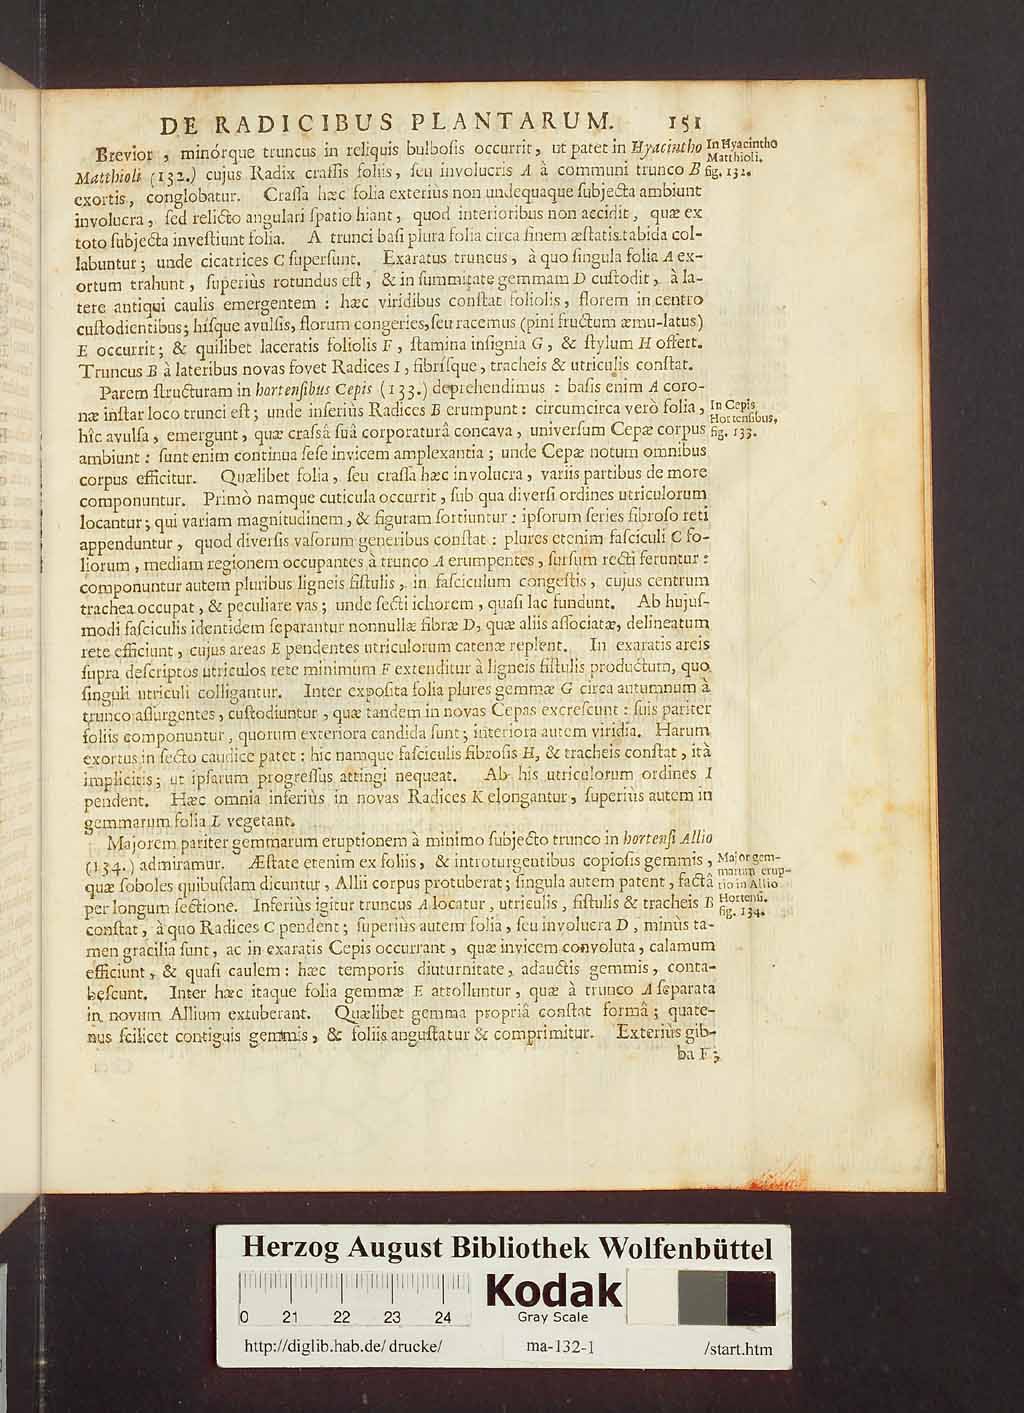 DE RADICIBUS PLANTARUM. 151
Brevior, minórque truncus in reliquis bulbosis occurrit, ut patet in Hyacintho
Matthioli (132.) cujus Radix crassis foliis, seu involucris A à communi trunco B
exortis, conglobatur. Crassa hæc folia exterius non undequaque subjecta ambiunt
involucra, sed relicto angulari spatio hiant, quod interioribus non accidit, quæ ex
toto subjecta investiunt folia. A trunci basi plura folia circa finem æstatis tabida col-
labuntur; unde cicatrices C supersunt. Exaratus truncus, à quo singula folia A ex-
ortum trahunt, superiùs rotundus est, & in summitate gemmam D custodit, à la-
tere antiqui caulis emergentem : hæc viridibus constat foliolis, florem in centro
custodientibus; hisque avulsis, florum congeries, seu racemus (pini fructum æmu-latus)
E occurrit; & quilibet laceratis foliolis F, stamina insignia G, & stylum H offert.
Truncus B à lateribus novas fovet Radices I, fibrisque, tracheis & utriculis constat.
Parem structuram in hortensibus Cepis (133.) deprehendimus : basis enim A coro-
næ instar loco trunci est; unde inferiùs Radices B erumpunt : circumcirca verò folia,
hîc avulsa, emergunt, quæ crassâ suâ corporaturâ concava, universum Cepæ corpus
ambiunt : sunt enim continua sese invicem amplexantia; unde Cepæ notum omnibus
corpus efficitur. Quælibet folia, seu crassa hæc involucra, variis partibus de more
componuntur. Primò namque cuticula occurrit, sub qua diversi ordines utriculorum
locantur; qui variam magnitudinem, & figuram sortiuntur : ipsorum series fibroso reti
appenduntur, quod diversis vasorum generibus constat : plures etenim fasciculi C fo-
liorum, mediam regionem occupantes à trunco A erumpentes, sursum recti feruntur :
componuntur autem pluribus ligneis fistulis, in fasciculum congestis, cujus centrum
trachea occupat, & peculiare vas; unde secti ichorem, quasi lac fundunt. Ab hujus-
modi fasciculis identidem separantur nonnullæ fibræ D, quæ aliis associatæ, delineatum
rete efficiunt, cujus areas E pendentes utriculorum catenæ replent. In exaratis areis
supra descriptos utriculos rete minimum F extenditur à ligneis fistulis productum, quo
singuli utriculi colligantur. Inter exposita folia plures gemmæ G circa autumnum à
trunco assurgentes, custodiuntur, quæ tandem in novas Cepas excrescunt : suis pariter
foliis componuntur, quorum exteriora candida sunt; interiora autem viridia. Harum
exortus in secto caudice patet : hic namque fasciculis fibrosis H, & tracheis constat, ità
implicitis; ut ipsarum progressus attingi nequeat. Ab his utriculorum ordines I
pendent. Hæc omnia inferiùs in novas Radices K elongantur, superiùs autem in
gemmarum folia L vegetant.
Majorem pariter gemmarum eruptionem à minimo subjecto trunco in hortensi Allio
(134.) admiramur. Æstate etenim ex foliis, & introturgentibus copiosis gemmis,
quæ soboles quibusdam dicuntur, Allii corpus protuberat; singula autem patent, factâ
per longum sectione. Inferiùs igitur truncus A locatur, utriculis, fistulis & tracheis B
constat, à quo Radices C pendent; superiùs autem folia, seu involucra D, minùs ta-
men gracilia sunt, ac in exaratis Cepis occurrant, quæ invicem convoluta, calamum
efficiunt, & quasi caulem : hæc temporis diuturnitate, adauctis gemmis, conta-
bescunt. Inter hæc itaque folia gemmæ E attolluntur, quæ à trunco A separata
in novum Allium extuberant. Quælibet gemma propriâ constat formâ; quate-
nus scilicet contiguis gemmis, & foliis angustatur & comprimitur. Exteriùs gib-
ba F;
In Hyacintho
Matthioli.
fig. 132.
In Cepis
Hortensibus,
fig. 133.
Major gem-
marum erup-
tio in Allio
Hortensi.
fig. 134.
Herzog August Bibliothek Wolfenbüttel
0 21 22 23 24
Kodak
Gray Scale
http://diglib.hab.de/drucke/ ma-132-1 /start.htm